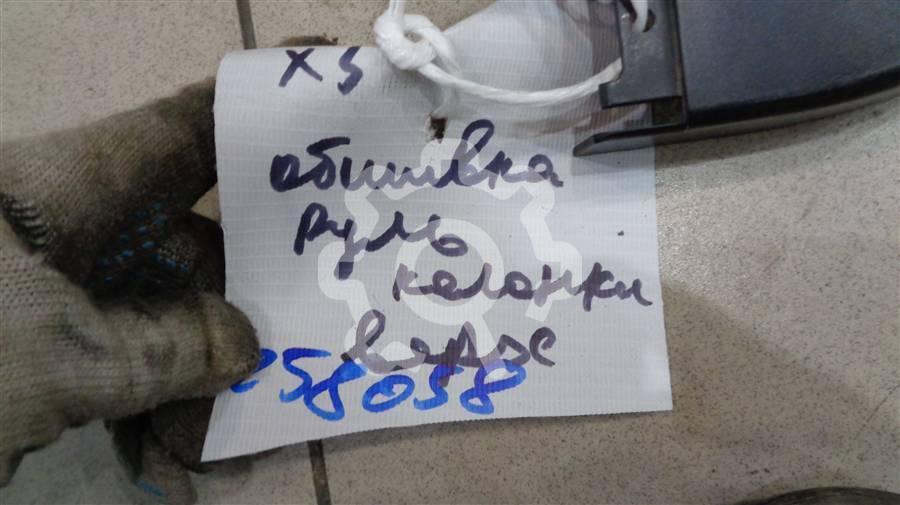 X5
обшивка
руль
колонки
верх
258058